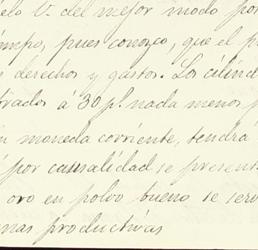 elo V. del mejor modo por
iempo, pues conozco, que el p
s derechos y gastos. Los cilind
brados a 30 p. nada menos p
n moneda corriente, tendrá
í por casualidad se present
oro en polvo bueno se ser
nas productivas